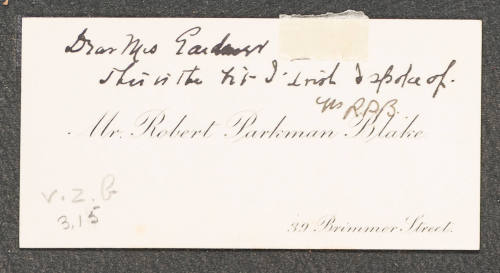 Dear Mrs Gardner
This is the bit o' Irish I spoke of.
Yrs R.P.B.
Mr. Robert Parkman Blake
v. 2. b
3.15
39 Brimmer Street.